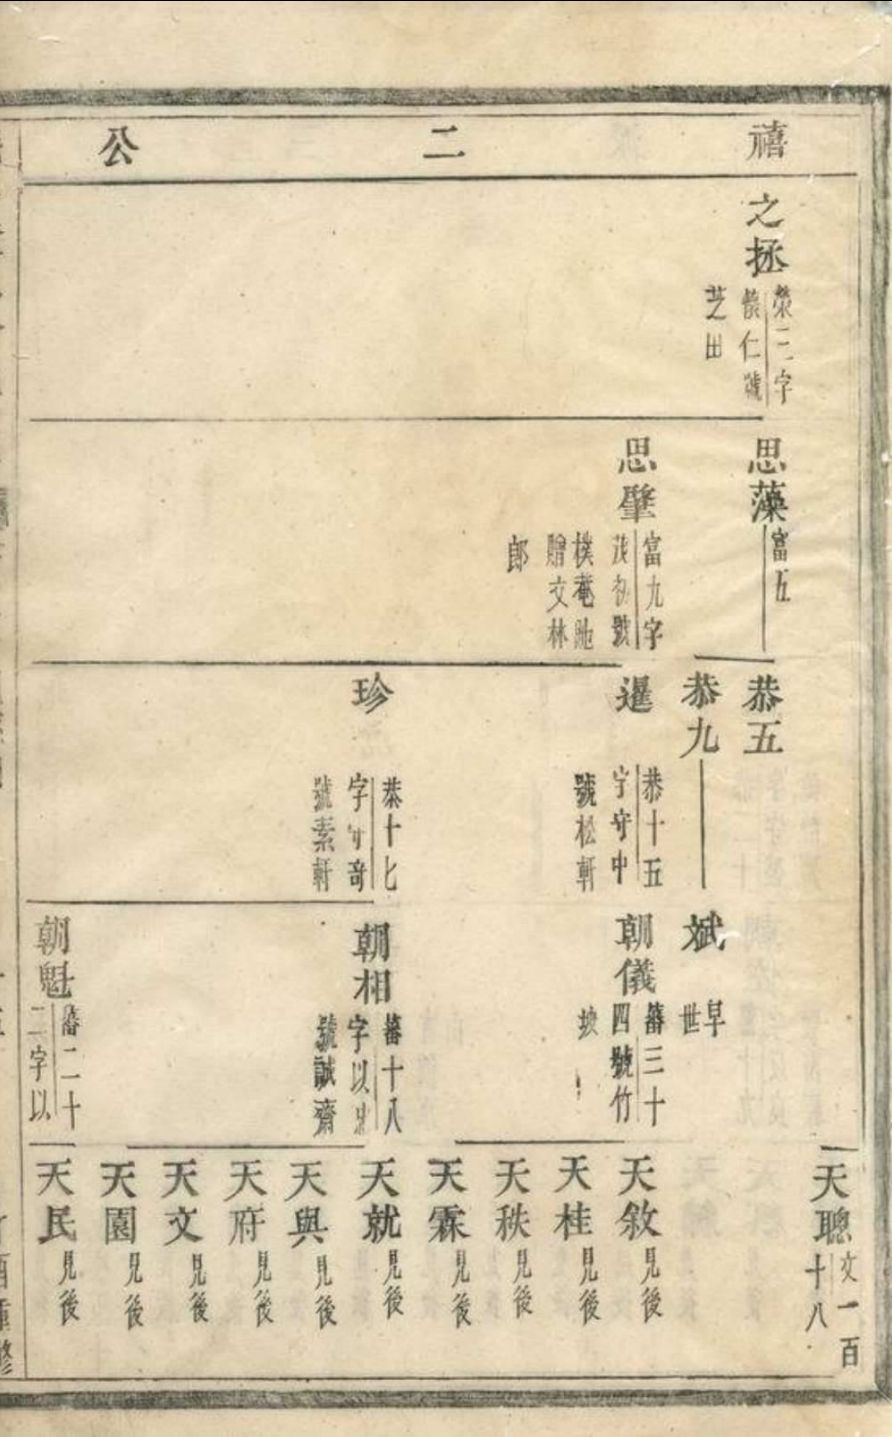 禧二公
之拯
榮二字
懷仁號
芝田
思藻
富五
思肇
富九字
茂初號
樸菴貤
贈文林
郎
恭五
恭九
暹
恭十五
字守中
號松軒
珍
恭十七
字守奇
號素軒
斌
早
世
朝儀
蕃三十
四號竹
坡
朝相
蕃十八
字以忠
號誠齋
朝魁
蕃二十
二字以
天聰
文一百
十八
天敘
見後
天桂
見後
天秩
見後
天霖
見後
天就
見後
天與
見後
天府
見後
天文
見後
天園
見後
天民
見後